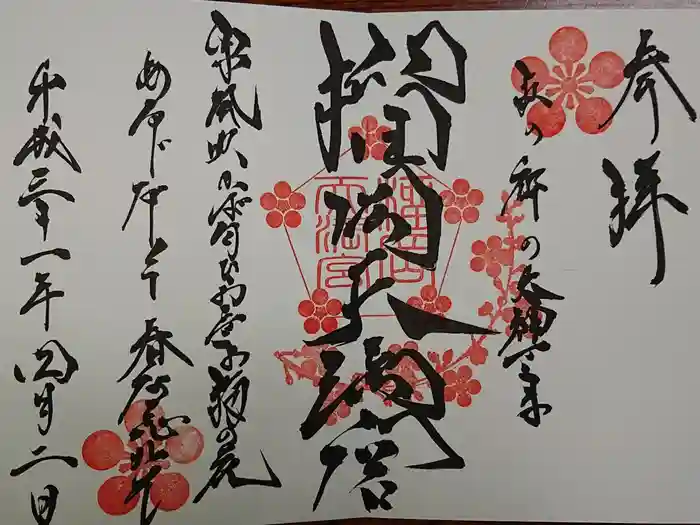 参拝
文の祖の大神
榴岡天満宮
東風吹かば匂ひおこせよ梅の花
あるじなしとて春な忘れそ
平成三十一年四月二日